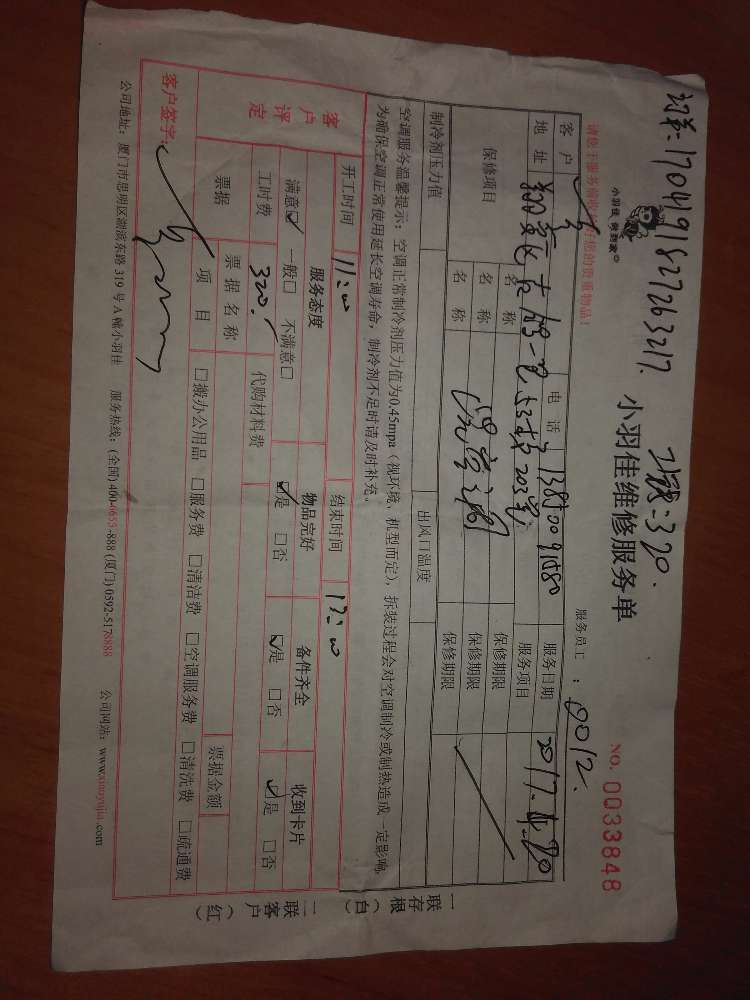 订单:1704191827263217.
320.
小羽佳 快到家
小羽佳维修服务单
NO. 0033848
请您于服务前收好您的贵重物品!
服务员工: 0012.
客户
电话
服务日期 2017.4.20
地址
203室
服务项目
保修项目
名称
保修期限
名称
保修期限
名称
保修期限
制冷剂压力值
出风口温度
空调服务温馨提示:空调正常制冷剂压力值为0.45mpa(视环境、机型而定),拆装过程会对空调制冷或制热造成一定影响,
为确保空调正常使用延长空调寿命,制冷剂不足时请及时补充。
开工时间 11:00
结束时间 12:00
客户评定
服务态度
物品完好
备件齐全
收到卡片
满意☑ 一般□ 不满意□
☑是 □否
☑是 □否
☑是 □否
工时费 320.
代购材料费
票据
票据名称
票据金额
项目 □搬办公用品 □服务费 □清洁费 □空调服务费 □清洗费 □疏通费
客户签字:
公司地址:厦门市思明区湖滨东路 319 号 A 幢小羽佳 服务热线:(全国) 400-0655-888 (厦门) 0592-5178888 公司网站:www.xiaoyujia.com
一联存根(白)
二联客户(红)